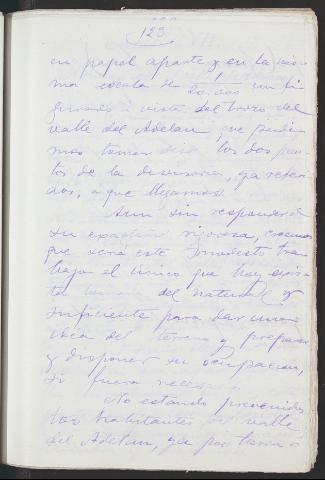 123
en papel aparte y en la mis
ma escala de un fi
gurado a vista del trozo del
valle del Adelau que pudi
mos tomar los dos pun
tos de la divisoria, ya referi
dos, a que llegamos.
Aun sin responder de
su exactitud rigurosa, creemos
que será este modesto tra
bajo el único que hay
del natural y
suficiente para dar una
idea del terreno y preparar
y disponer su ocupación,
si fuera necesa
No estando prevenidos
los habitantes valle
del Adelau, ya por